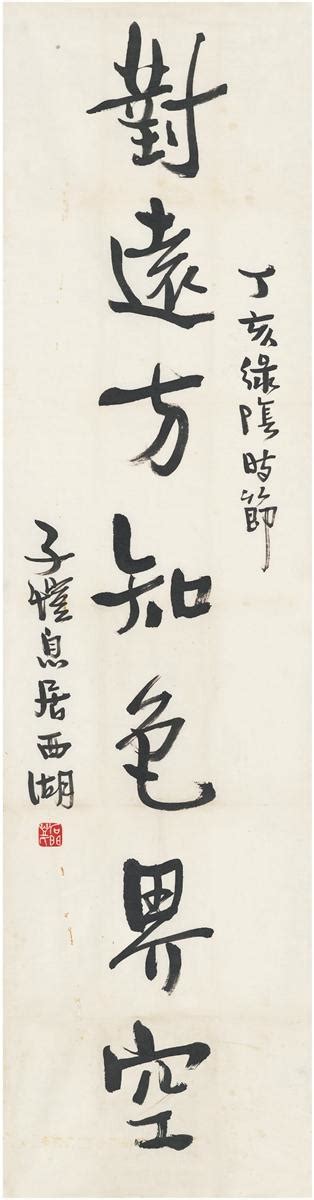 丁亥綠陰時節
對遠方知色界空
子愷息居西湖
石門豐氏